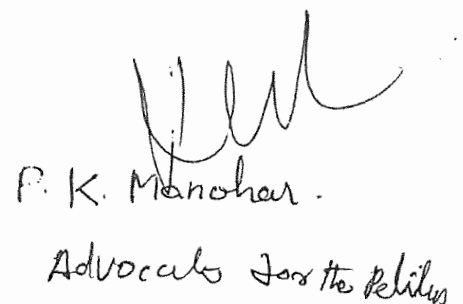 P. K. Manohar.
Advocate for the Petitioner